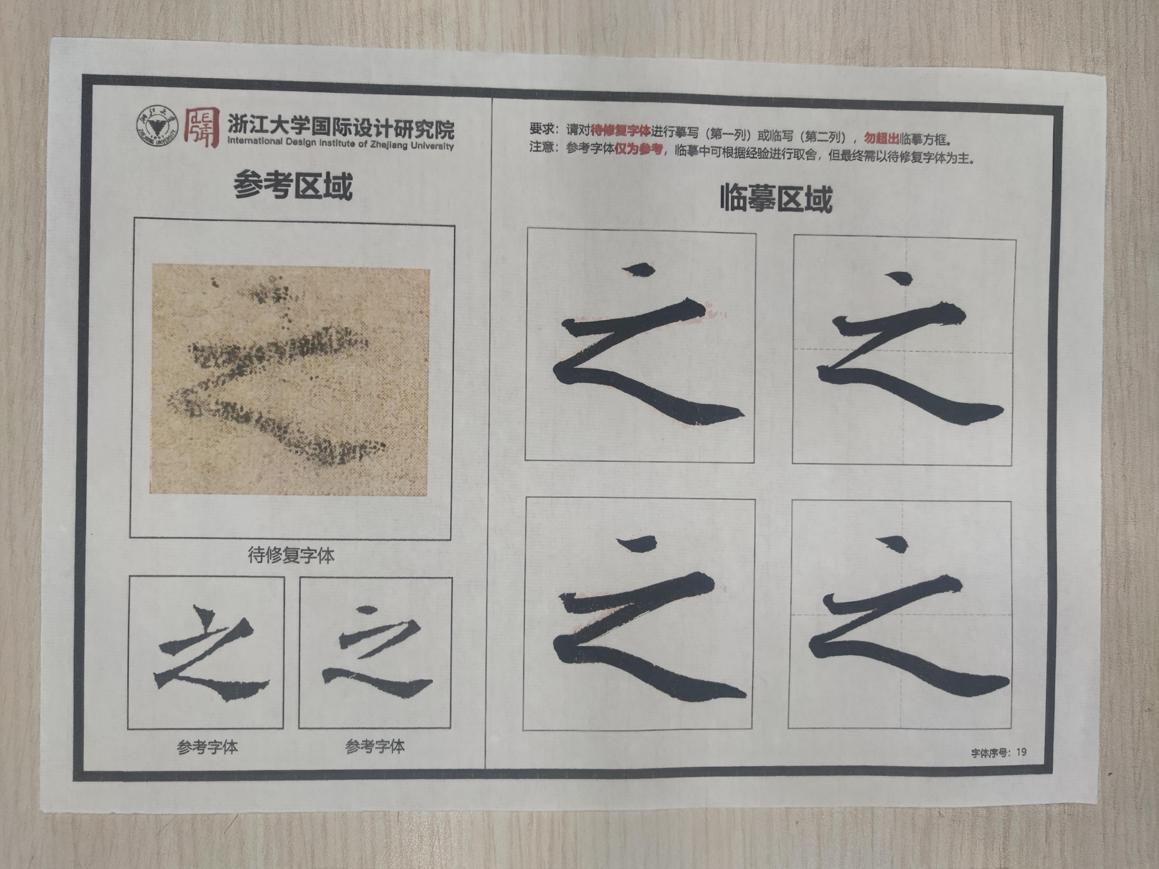 浙江大学国际设计研究院
International Design Institute of Zhejiang University
参考区域
待修复字体
之
之
参考字体
参考字体
要求：请对待修复字体进行摹写（第一列）或临写（第二列），勿超出临摹方框。
注意：参考字体仅为参考，临摹中可根据经验进行取舍，但最终需以待修复字体为主。
临摹区域
之
之
之
之
字体序号：19